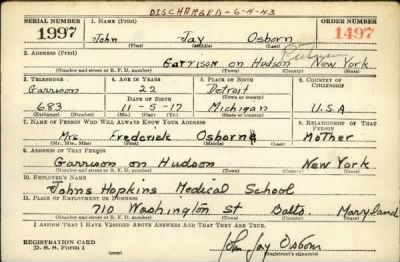 DISCHARGED-6-4-43
SERIAL NUMBER 1. NAME (Print) ORDER NUMBER
1997 John Jay Osborn 1497
(First) (Middle) (Last)
2. ADDRESS (Print)
Garrison on Hudson Putnam New York
(Number and street or R. F. D. number) (Town) (County) (State)
3. TELEPHONE 4. AGE IN YEARS 5. PLACE OF BIRTH 6. COUNTRY OF CITIZENSHIP
Garrison 22 Detroit
DATE OF BIRTH (Town or county)
683 11-5-17 Michigan U.S.A
(Exchange) (Number) (Mo.) (Day) (Yr.) (State or country)
7. NAME OF PERSON WHO WILL ALWAYS KNOW YOUR ADDRESS 8. RELATIONSHIP OF THAT PERSON
Mrs. Frederick Osborn Mother
(Mr., Mrs., Miss) (First) (Middle) (Last)
9. ADDRESS OF THAT PERSON
Garrison on Hudson New York
(Number and street or R. F. D. number) (Town) (County) (State)
10. EMPLOYER'S NAME
Johns Hopkins Medical School
11. PLACE OF EMPLOYMENT OR BUSINESS
710 Washington St Balto. Maryland
(Number and street or R. F. D. number) (Town) (County) (State)
I AFFIRM THAT I HAVE VERIFIED ABOVE ANSWERS AND THAT THEY ARE TRUE.
REGISTRATION CARD
D. S. S. Form 1 John Jay Osborn
(Registrant's signature)